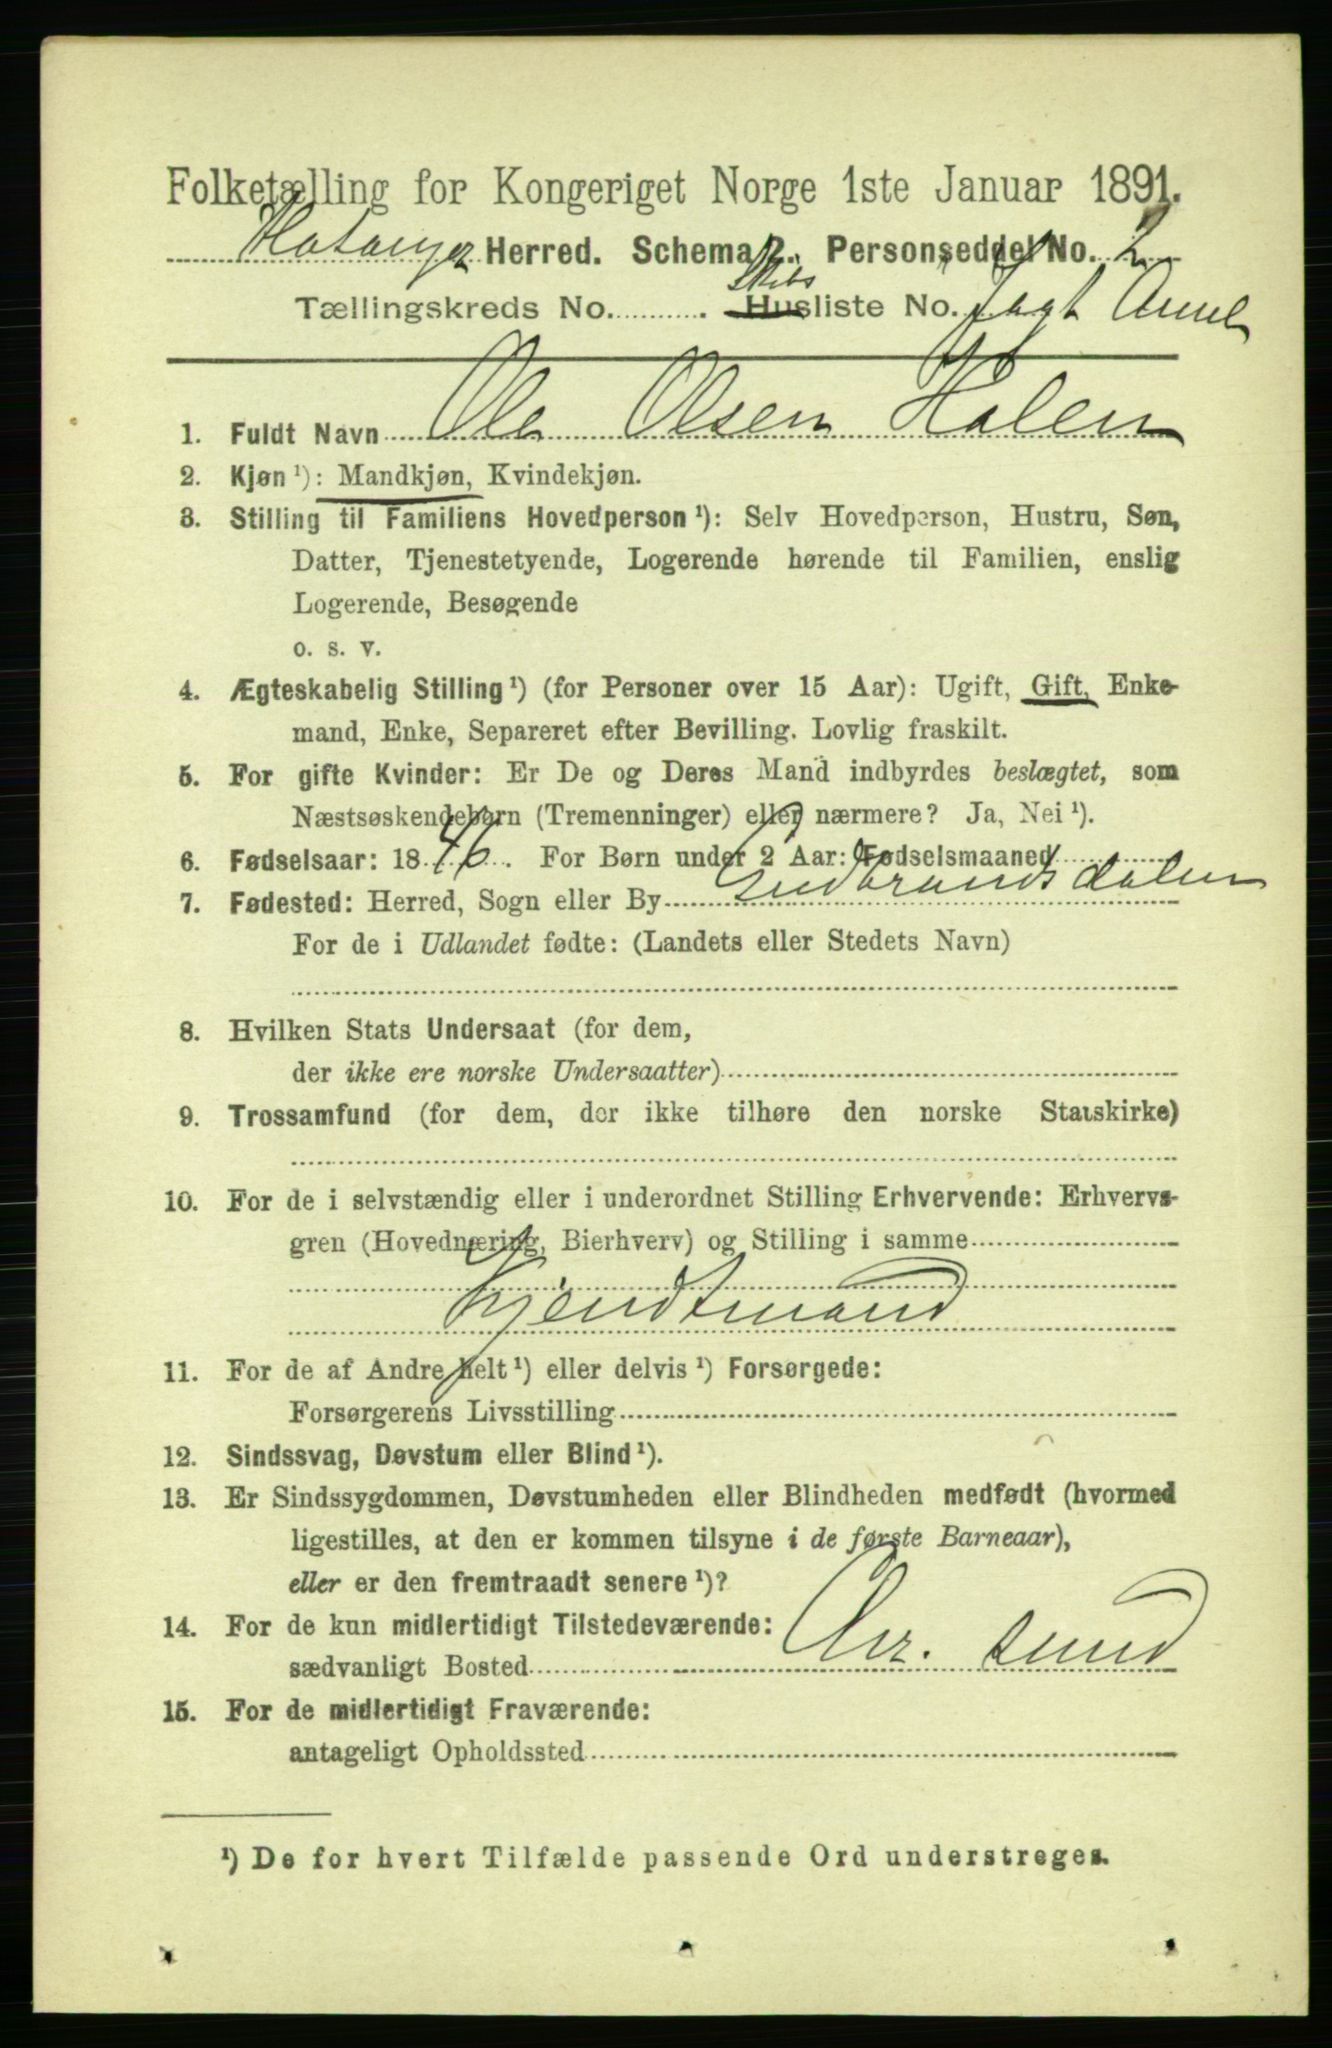 Folketælling for Kongeriget Norge 1ste Januar 1891.
Herred. Schema 2. Personseddel No. 2
Tællingskreds No. .......... . Skibs Husliste No. Jagt
1. Fuldt Navn Ole Olsen Holen
2. Kjøn ¹): Mandkjøn, Kvindekjøn.
3. Stilling til Familiens Hovedperson ¹): Selv Hovedperson, Hustru, Søn,
Datter, Tjenestetyende, Logerende hørende til Familien, enslig
Logerende, Besøgende
o. s. v.
4. Ægteskabelig Stilling ¹) (for Personer over 15 Aar): Ugift, Gift, Enke-
mand, Enke, Separeret efter Bevilling. Lovlig fraskilt.
5. For gifte Kvinder: Er De og Deres Mand indbyrdes beslægtet, som
Næstsøskendebørn (Tremenninger) eller nærmere? Ja, Nei ¹).
6. Fødselsaar: 1846. For Børn under 2 Aar: Fødselsmaaned
7. Fødested: Herred, Sogn eller By Gudbrandsdalen
For de i Udlandet fødte: (Landets eller Stedets Navn)
8. Hvilken Stats Undersaat (for dem,
der ikke ere norske Undersaatter)
9. Trossamfund (for dem, der ikke tilhøre den norske Statskirke)
10. For de i selvstændig eller i underordnet Stilling Erhvervende: Erhvervs-
gren (Hovednæring, Bierhverv) og Stilling i samme
Kjendtmand
11. For de af Andre helt ¹) eller delvis ¹) Forsørgede:
Forsørgerens Livsstilling
12. Sindssvag, Døvstum eller Blind ¹).
13. Er Sindssygdommen, Døvstumheden eller Blindheden medfødt (hvormed
ligestilles, at den er kommen tilsyne i de første Barneaar),
eller er den fremtraadt senere ¹)?
14. For de kun midlertidigt Tilstedeværende:
sædvanligt Bosted Chr. sund
15. For de midlertidigt Fraværende:
antageligt Opholdssted
¹) De for hvert Tilfælde passende Ord understreges.